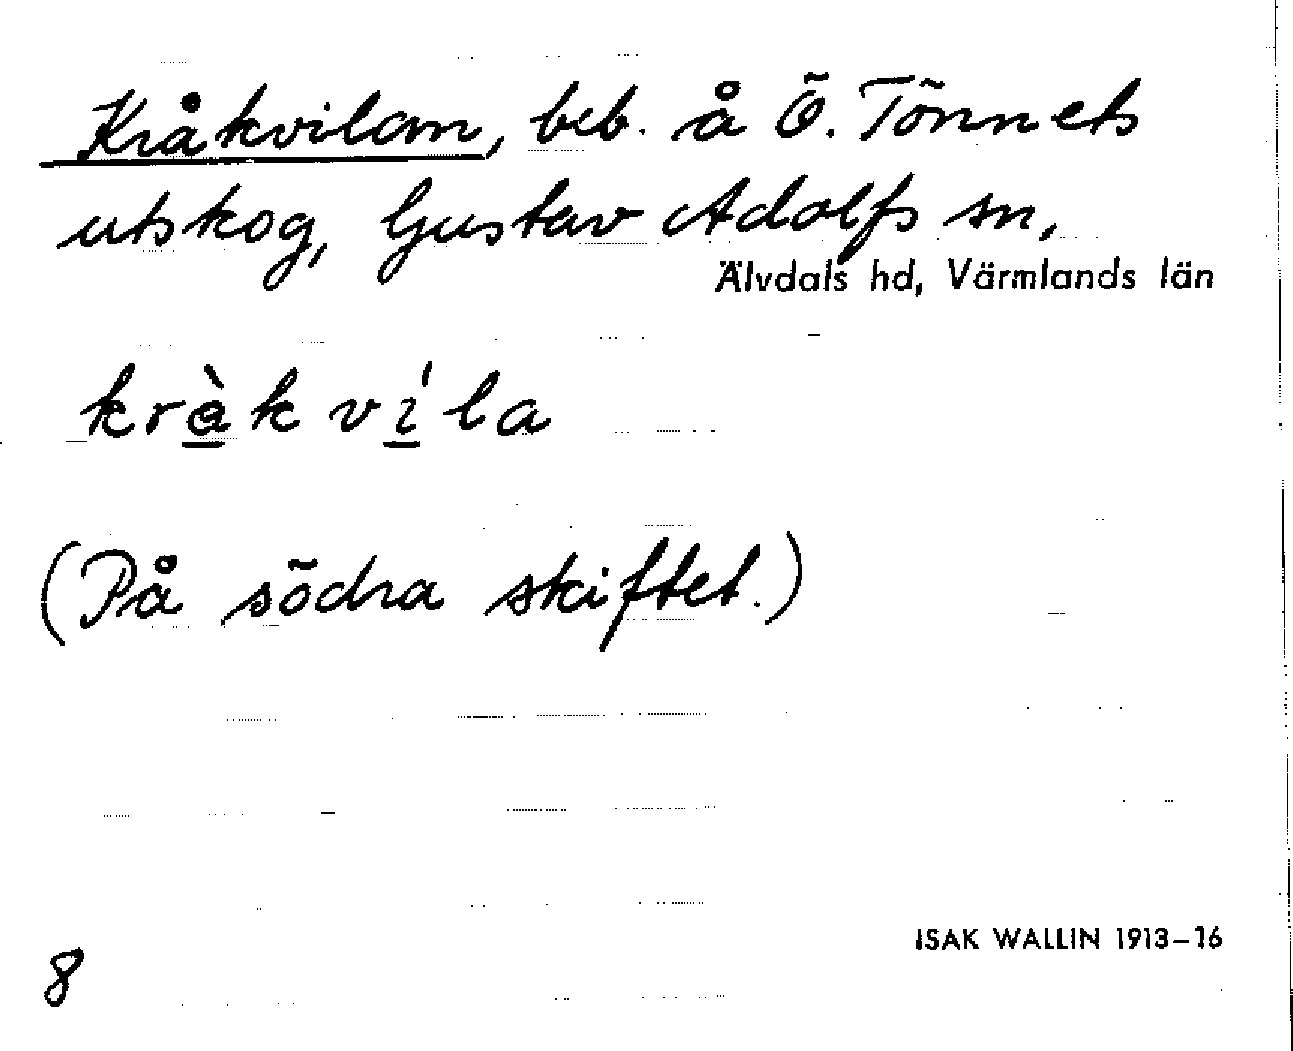 Kråkvilam, beb. å Ö. Tönnets
utskog, Gustav Adolfs sn,
Älvdals hd, Värmlands län
kràkvíla
(På södra skiftet.)
ISAK WALLIN 1913-16
8